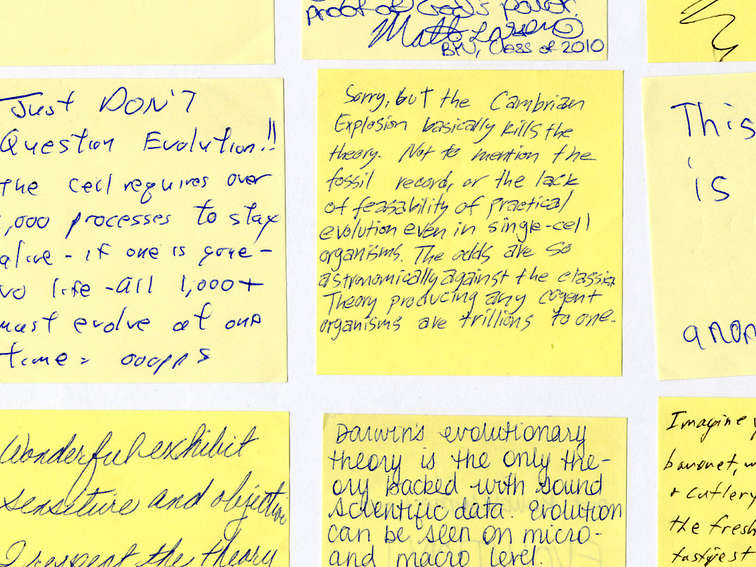 proof of God's power.
Matt Larson
BPU, Class of 2010
Just DON'T
Question Evolution!!
the cell requires over
1,000 processes to stay
alive - if one is gone -
no life - all 1,000+
must evolve at one
time = ooopps
Sorry, but the Cambrian
Explosion basically kills the
theory. Not to mention the
fossil record, or the lack
of feasability of practical
evolution even in single-cell
organisms. The odds are so
astronomically against the classica
Theory producing any cogent
organisms are trillions to one.
This
is
anon
Wonderful exhibit
sensitive and objective
I respect the theory
Darwin's evolutionary
theory is the only the-
ory backed with sound
scientific data. Evolution
can be seen on micro-
and macro level.
Imagine y
banquet, w
+ cutlery
the fresh
tastiest